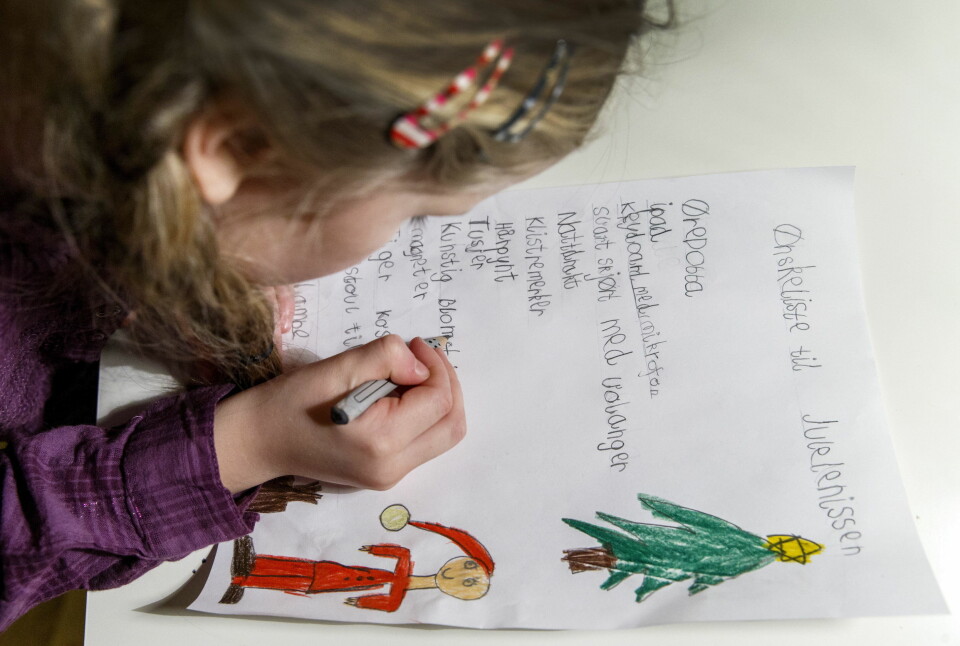 Ønskeliste til Juelenissen
Ørepobba
ipad
keyboard med mikrofon
svart skjørt med volanger
Nattdrakt
Klistremerker
Hårpynt
Tusjer
Kunstig blomst
magneter